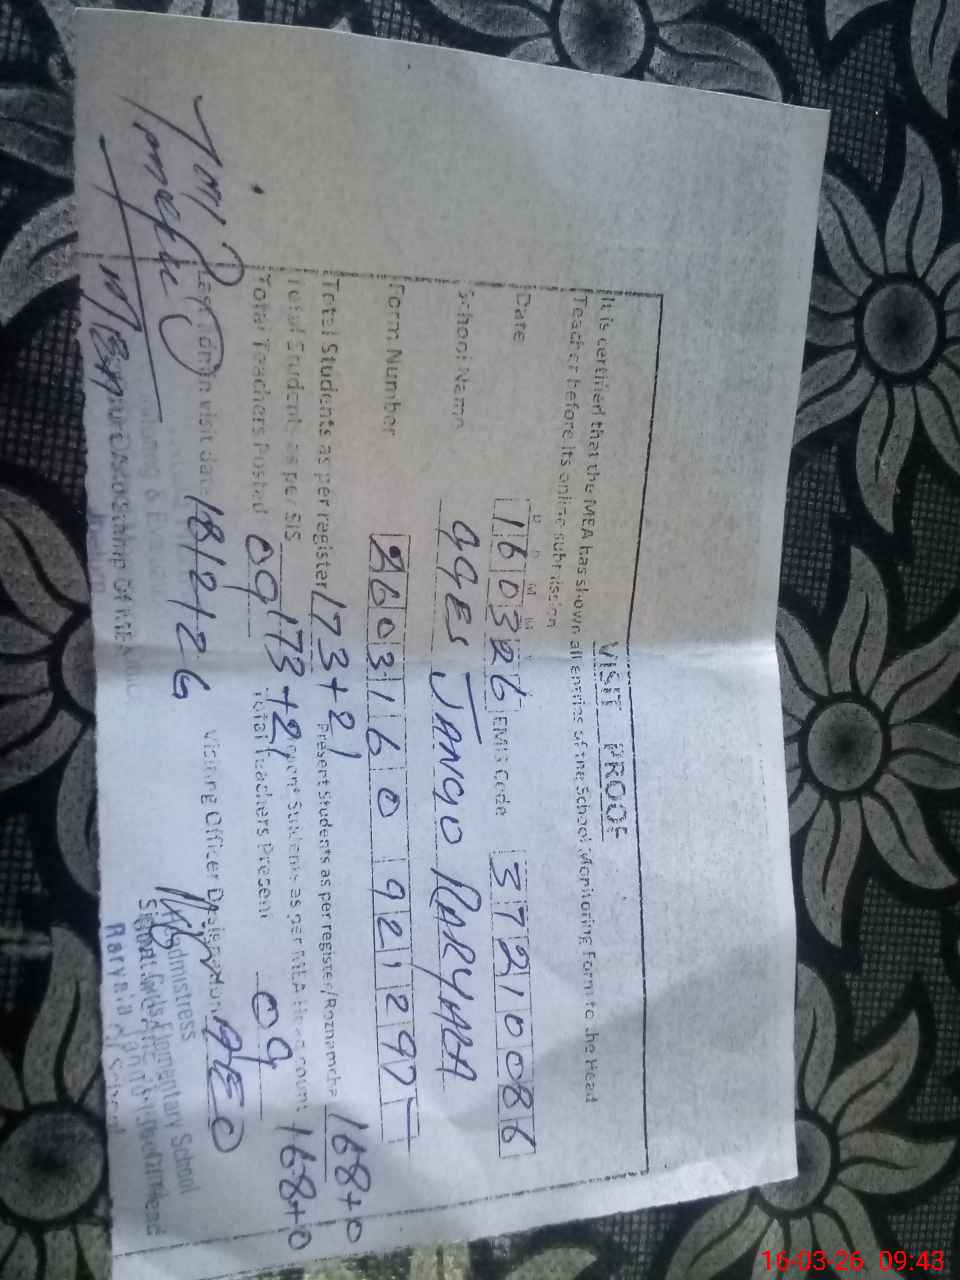 VISIT PROOF
It is certified that the MEA has shown all entries of the School Monitoring Form to the Head
Teacher before its online submission
D D M M
Date 160326 EMIS Code 37210086
School Name GGES JANGO RARYALA
Form Number 260316092129
Total Students as per register 173+21 Present Students as per register/Roznamcha 168+0
Total Student as per SIS 173+21 Students as per MEA Head count 168+0
Total Teachers Posted 09 Total Teachers Present 09
visit date 18/2/26 Visiting Officer Designation
Headmistress
Elementary School
16-03-26 09:43